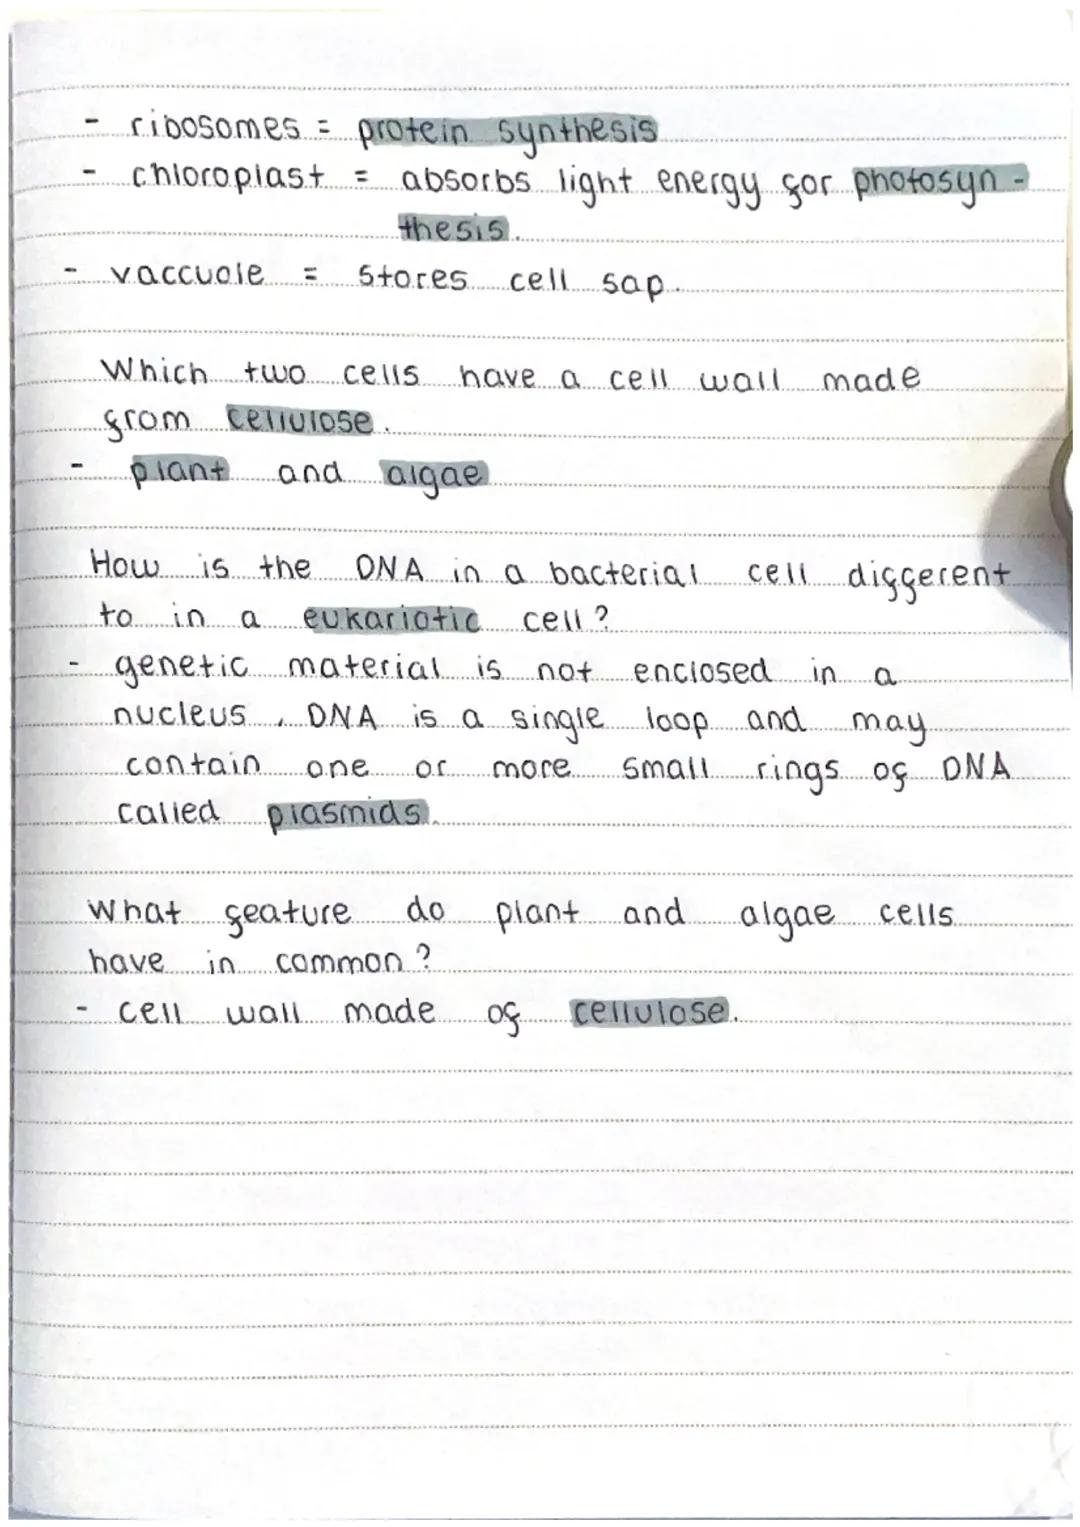 - ribosomes = protein synthesis
- chloroplast = absorbs light energy for photosyn -
thesis.
- vaccuole = stores cell sap.
Which two cells have a cell wall made
from cellulose.
- plant and algae
How is the DNA in a bacterial cell different
to in a eukariotic cell?
- genetic material is not enclosed in a
nucleus, DNA is a single loop and may
contain one or more small rings of DNA
called plasmids.
What feature do plant and algae cells
have in common?
- cell wall made of cellulose.